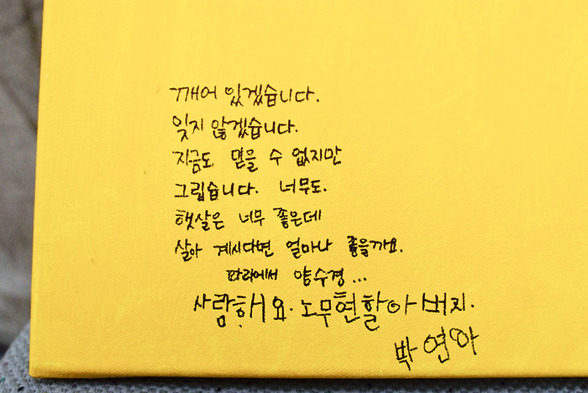 깨어 있겠습니다.
잊지 않겠습니다.
지금도 믿을 수 없지만
그립습니다. 너무도.
햇살은 너무 좋은데
살아 계시다면 얼마나 좋을까요.
파라에서 양수경...
사람해요. 노무현할아버지.
박연아